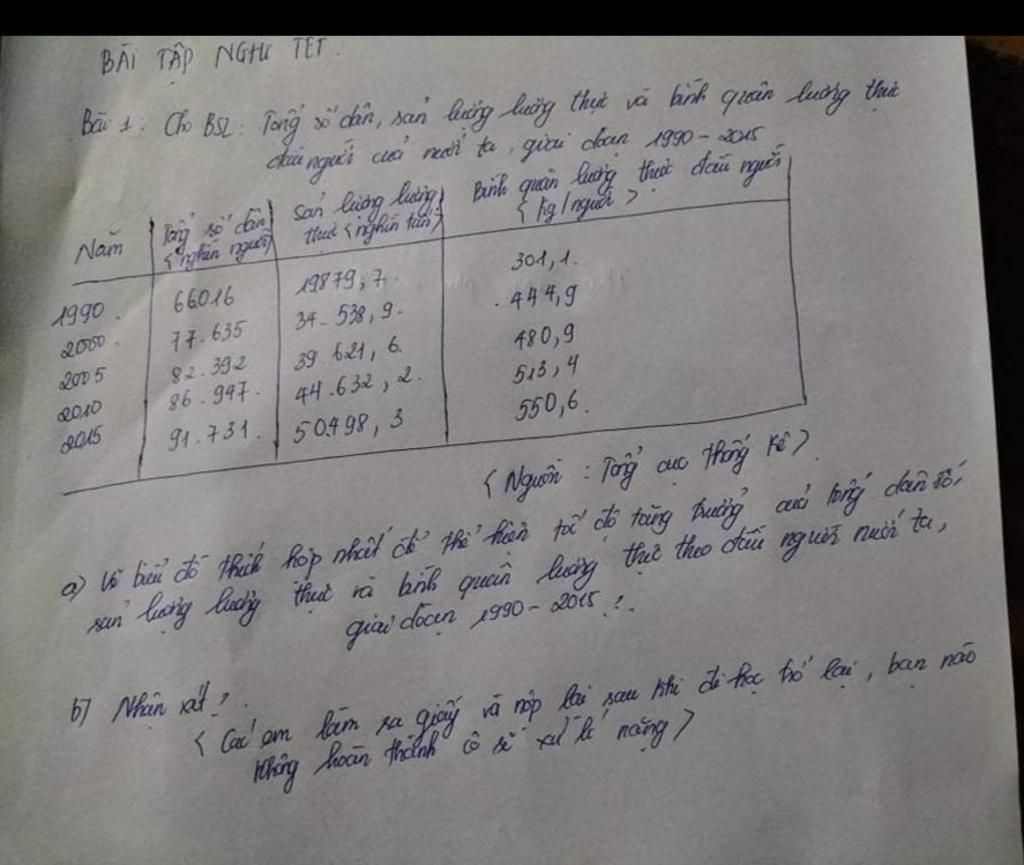 BÀI TẬP NGHỈ TẾT.
Bài 1: Cho BSL: Tổng số dân, sản lượng lương thực và bình quân lương thực
đầu người của nước ta, giai đoạn 1990 - 2015
Năm | Tổng số dân (nghìn người) | Sản lượng lương thực (nghìn tấn) | Bình quân lương thực đầu người (kg/người)
1990. | 66016 | 19879,7. | 301,1.
2000. | 77.635 | 34.538,9. | 444,9
2005 | 82.392 | 39.621,6. | 480,9
2010 | 86.947. | 44.632,2. | 513,4
2015 | 91.731. | 50.498,3 | 550,6.
(Nguồn: Tổng cục thống kê).
a) Vẽ biểu đồ thích hợp nhất để thể hiện tốc độ tăng trưởng của tổng dân số,
sản lượng lương thực và bình quân lương thực theo đầu người nước ta,
giai đoạn 1990 - 2015?.
b) Nhận xét?.
(Các em làm ra giấy và nộp lại sau khi đi học trở lại, bạn nào
không hoàn thành cô sẽ xử lí nặng)